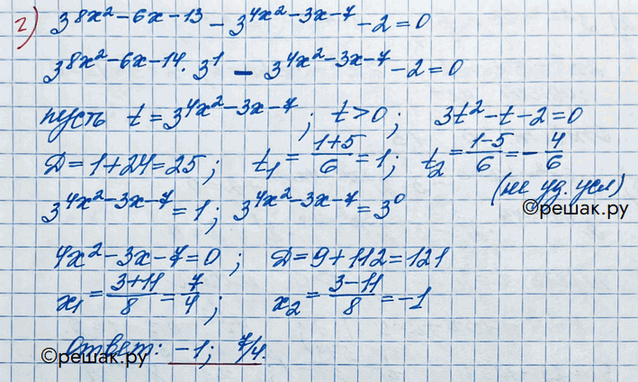 2) 3^{8x²-6x-13} - 3^{4x²-3x-7} - 2 = 0
3^{8x²-6x-14} · 3^1 - 3^{4x²-3x-7} - 2 = 0
пусть t = 3^{4x²-3x-7}; t > 0; 3t² - t - 2 = 0
D = 1 + 24 = 25; t₁ = \frac{1+5}{6} = 1; t₂ = \frac{1-5}{6} = -\frac{4}{6}
(не уд. усл)
3^{4x²-3x-7} = 1; 3^{4x²-3x-7} = 3^0
©решак.ру
4x² - 3x - 7 = 0; D = 9 + 112 = 121
x₁ = \frac{3+11}{8} = \frac{7}{4}; x₂ = \frac{3-11}{8} = -1
Ответ: -1; 7/4.
©решак.ру